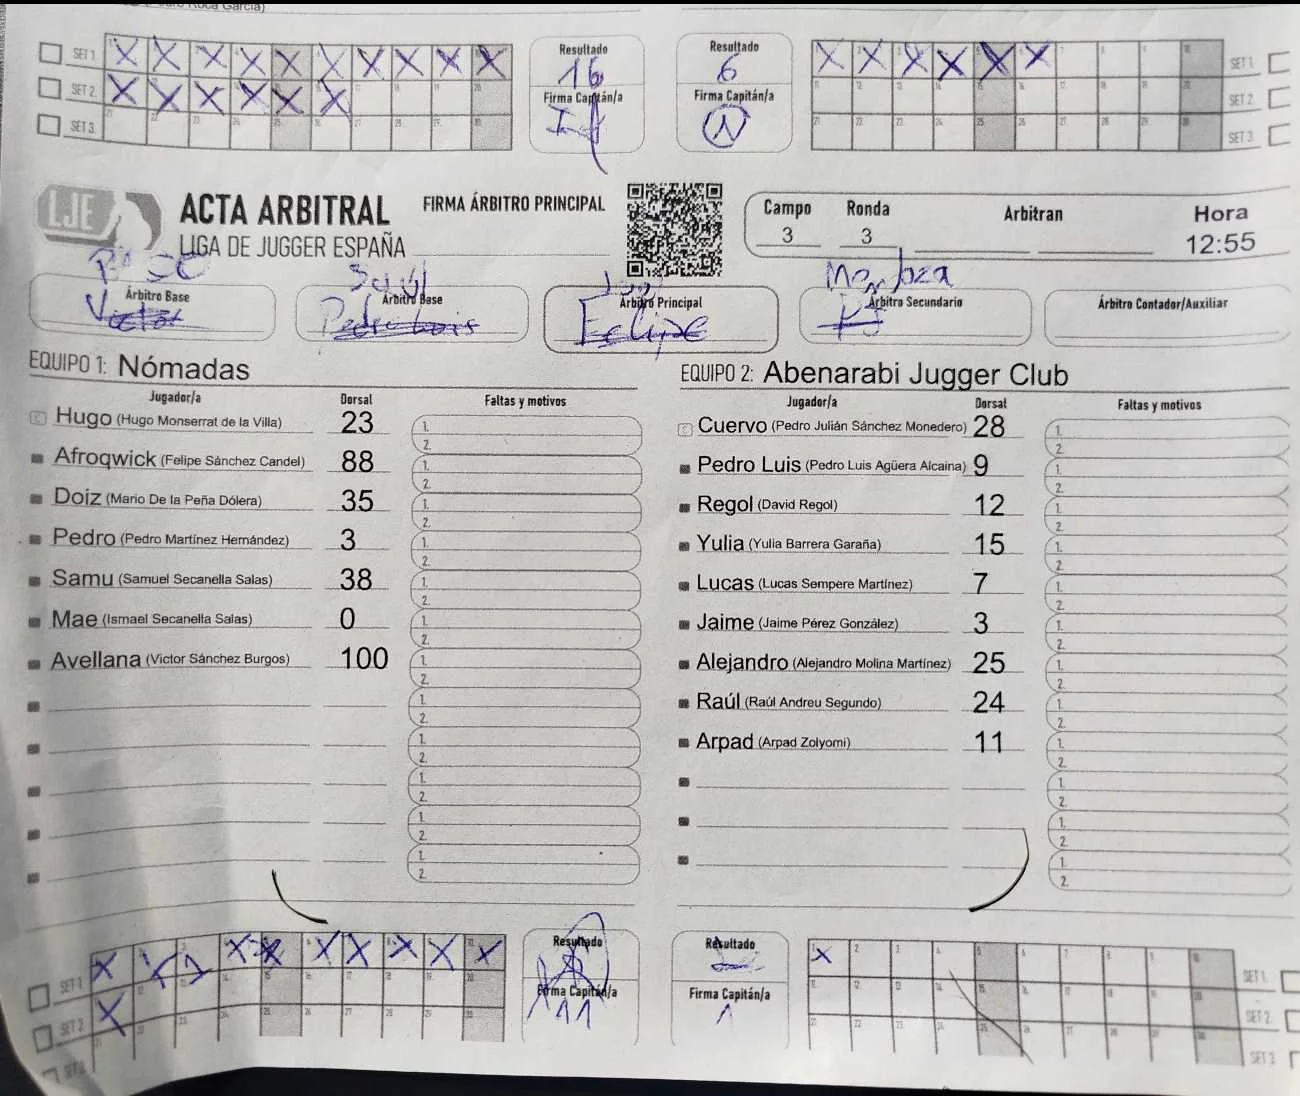 Pedro Roca García)
SET 1. Resultado Resultado SET 1.
16 6
SET 2. Firma Capitán/a Firma Capitán/a SET 2.
SET 3. SET 3.
LJE ACTA ARBITRAL FIRMA ÁRBITRO PRINCIPAL
LIGA DE JUGGER ESPAÑA
Campo Ronda Arbitran Hora
3 3 12:55
Saúl Mendoza
Árbitro Base Árbitro Base Árbitro Principal Árbitro Secundario Árbitro Contador/Auxiliar
Victor Pedro Luis Felipe PJ
EQUIPO 1: Nómadas
Jugador/a Dorsal Faltas y motivos
C Hugo (Hugo Monserrat de la Villa) 23 1.
2.
Afroqwick (Felipe Sánchez Candel) 88 1.
2.
Doiz (Mario De la Peña Dólera) 35 1.
2.
Pedro (Pedro Martínez Hernández) 3 1.
2.
Samu (Samuel Secanella Salas) 38 1.
2.
Mae (Ismael Secanella Salas) 0 1.
2.
Avellana (Victor Sánchez Burgos) 100 1.
2.
1.
2.
1.
2.
1.
2.
1.
2.
1.
2.
EQUIPO 2: Abenarabi Jugger Club
Jugador/a Dorsal Faltas y motivos
C Cuervo (Pedro Julián Sánchez Monedero) 28 1.
2.
Pedro Luis (Pedro Luis Agüera Alcaina) 9 1.
2.
Regol (David Regol) 12 1.
2.
Yulia (Yulia Barrera Garaña) 15 1.
2.
Lucas (Lucas Sempere Martínez) 7 1.
2.
Jaime (Jaime Pérez González) 3 1.
2.
Alejandro (Alejandro Molina Martínez) 25 1.
2.
Raúl (Raúl Andreu Segundo) 24 1.
2.
Arpad (Arpad Zolyomi) 11 1.
2.
1.
2.
1.
2.
1.
2.
SET 1 Resultado Resultado SET 1.
SET 2 Firma Capitán/a Firma Capitán/a SET 2.
11 1
SET 3